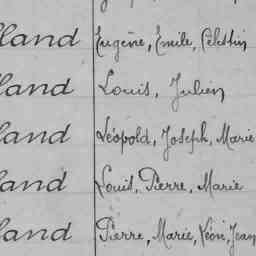 lland Eugène, Emile, Célestin
lland Louis, Julien
lland Léopold, Joseph, Marie
land Louis, Pierre, Marie
land Pierre, Marie, Léon, Jean